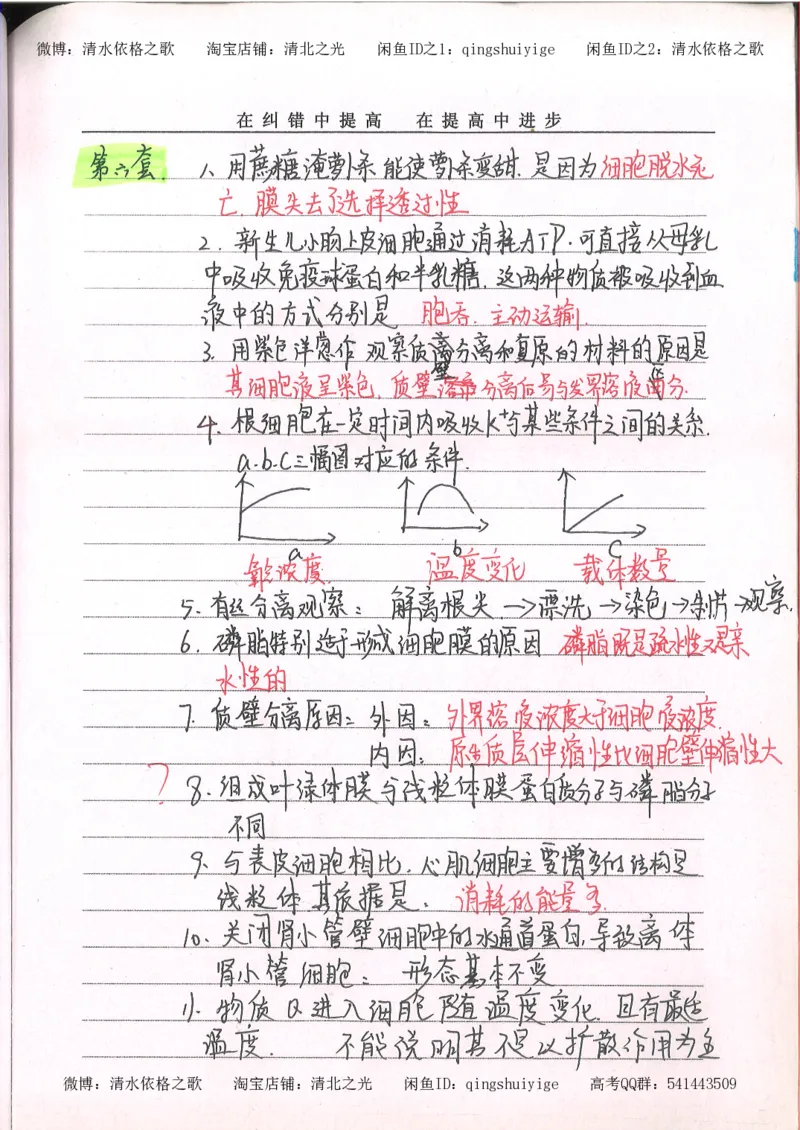 微博：清水依格之歌 淘宝店铺：清北之光 闲鱼ID之1：qingshuiyige 闲鱼ID之2：清水依格之歌
在纠错中提高 在提高中进步
第六套. 1、用蔗糖淹萝卜条能使萝卜条变甜.是因为细胞脱水死
亡.膜失去了选择透过性
2、新生儿小肠上皮细胞通过消耗ATP.可直接从母乳
中吸收免疫球蛋白和半乳糖.这两种物质被吸收到血
液中的方式分别是 胞吞.主动运输.
3、用紫色洋葱作观察质离分离和复原的材料的原因是
其细胞液呈紫色,质壁分离后易与外界溶液区分.
4、根细胞在一定时间内吸收K⁺与某些条件之间的关系.
a.b.c三幅图对应的条件.
a b c
氧浓度. 温度变化 载体数量
5、有丝分离观察： 解离根尖→漂洗→染色→制片→观察.
6、磷脂特别适于形成细胞膜的原因 磷脂既是疏水性又是亲
水性的
7、质壁分离原因：外因：外界溶液浓度大于细胞液浓度.
内因：原生质层伸缩性比细胞壁伸缩性大
? 8、组成叶绿体膜与线粒体膜蛋白质分子与磷脂分子
不同
9、与表皮细胞相比,心肌细胞主要增多的结构是
线粒体.其依据是：消耗的能量多.
10、关闭肾小管壁细胞中的水通道蛋白,导致离体
肾小管细胞： 形态基本不变
11、物质Q进入细胞随温度变化.且有最适
温度. 不能说明其不是以扩散作用为主
微博：清水依格之歌 淘宝店铺：清北之光 闲鱼ID：qingshuiyige 高考QQ群：541443509